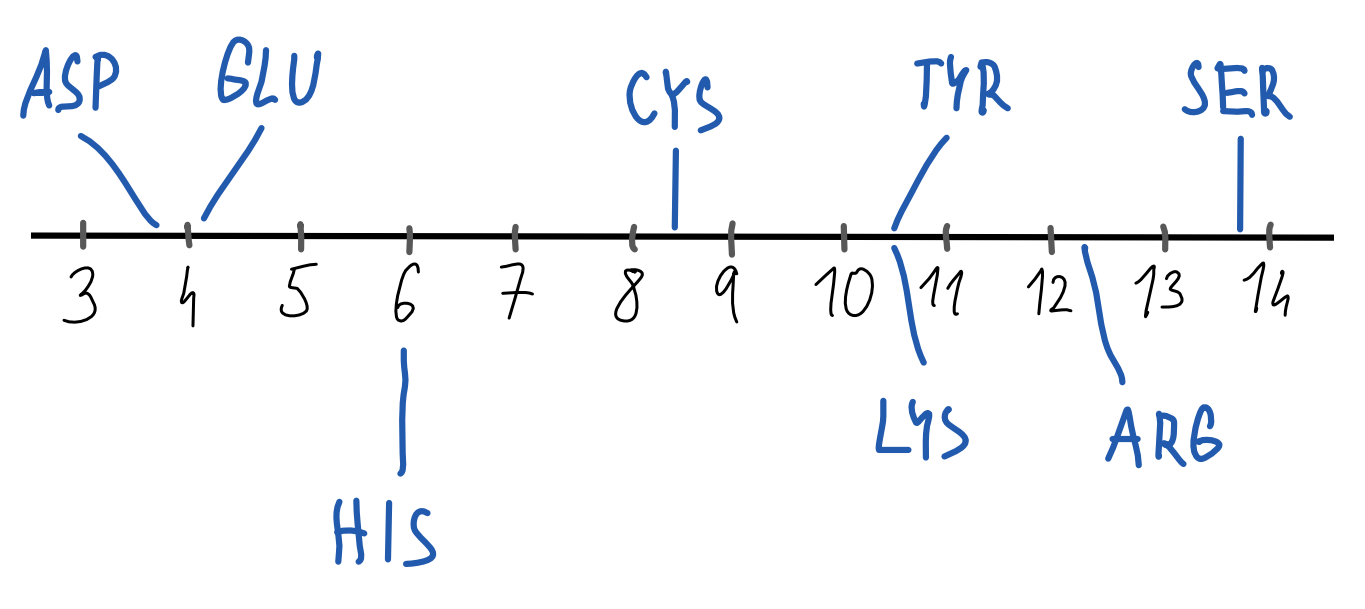 ASP GLU CYS TYR SER
3 4 5 6 7 8 9 10 11 12 13 14
LYS ARG
HIS